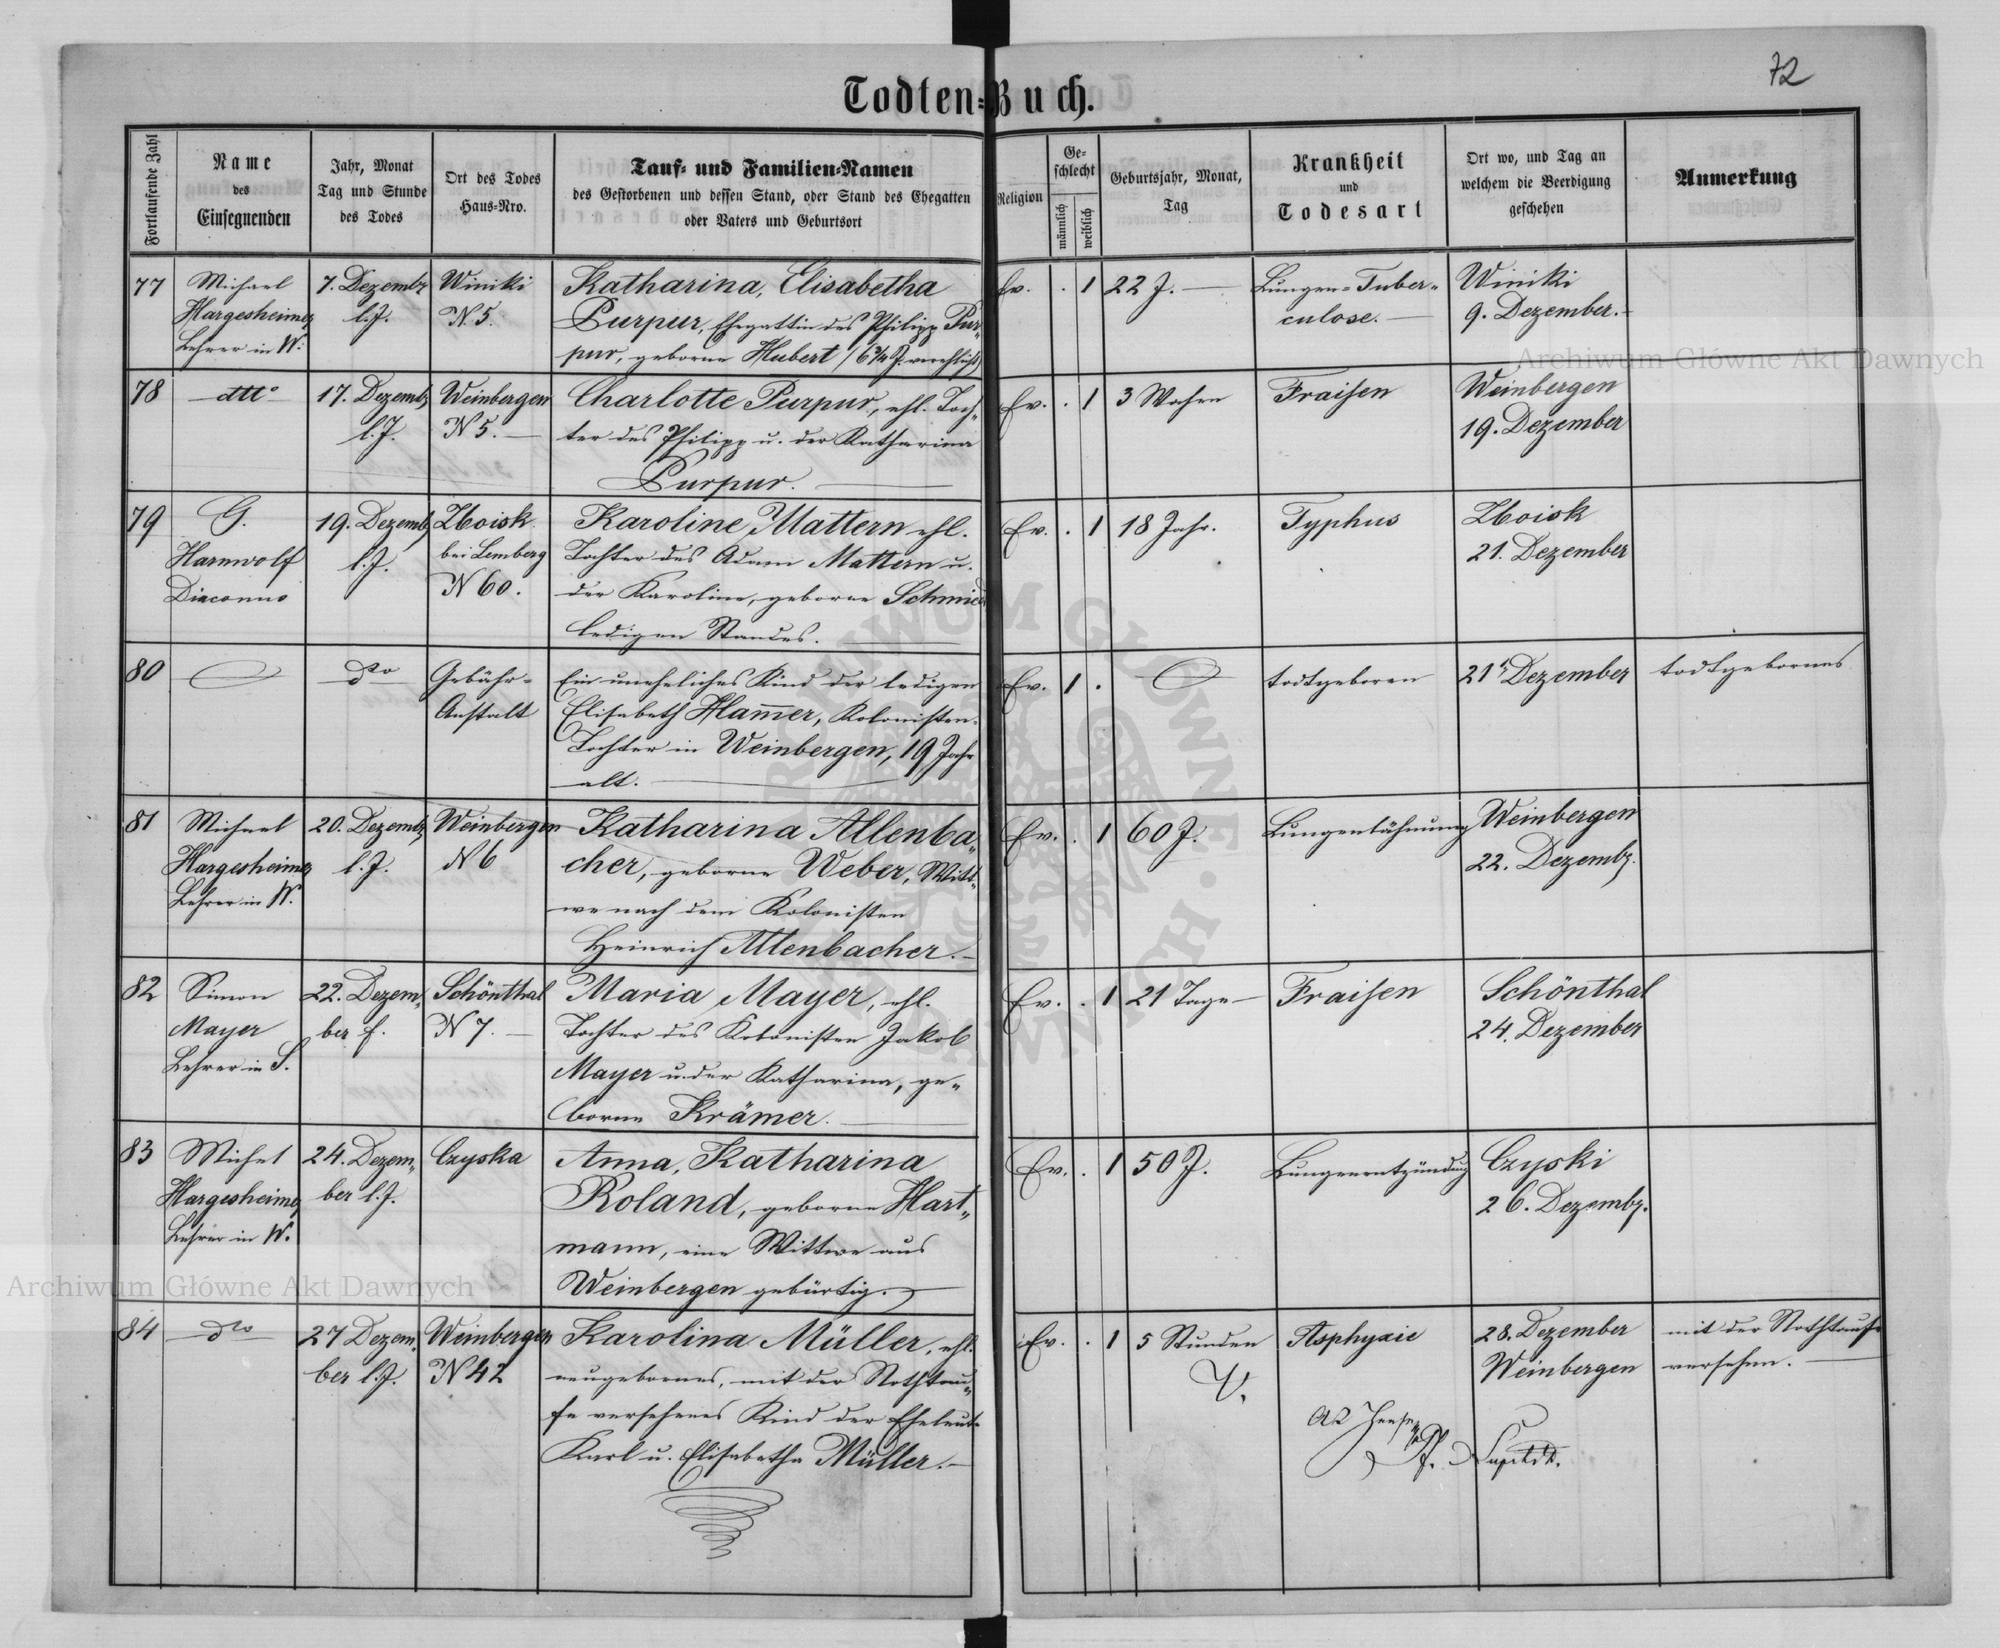 72
Todten-Buch.
Fortlaufende Zahl
Name
des
Einsegnenden
Jahr, Monat
Tag und Stunde
des Todes
Ort des Todes
Haus-Nro.
Tauf- und Familien-Namen
des Gestorbenen und dessen Stand, oder Stand des Ehegatten
oder Vaters und Geburtsort
Religion
Ge-
schlecht
männlich
weiblich
Geburtsjahr, Monat,
Tag
Krankheit
und
Todesart
Ort wo, und Tag an
welchem die Beerdigung
geschehen
Anmerkung
77
Michael
Hargesheimer
Lehrer in W.
7. Dezembr
l. J.
Winiki
N. 5.
Katharina, Elisabetha
Purpur, Ehegattin des Philipp Pur-
pur, geborne Hubert / 6 3/4 J. verehlicht
Ev. . 1
22 J. —
Lungen-Tuber-
culose. —
Winiki
9. Dezember. —
78
dtto
17. Dezemb.
l. J.
Weinbergen
N 5. —
Charlotte Purpur, ehl. Toch-
ter des Philipp u. der Katharina
Purpur. —
Ev. . 1
3 Wochen
Fraisen
Weinbergen
19. Dezember
79
G.
Harmwolf
Diaconus
19. Dezemb.
l. J.
Zboisk
bei Lemberg
N 60.
Karoline Mattern ehl.
Tochter des Adam Mattern u.
der Karoline, geborne Schmied
ledigen Standes.
Ev. . 1
18 Jahr.
Typhus
Zboisk
21. Dezember
80
dto
Gebähr-
Anstalt
Ein uneheliches Kind der ledigen
Elisabeth Ham̅er, Kolonisten-
Tochter in Weinbergen, 19 Jahr
alt. —
Ev. 1 .
todtgeboren
21. Dezember
todtgebornes
81
Michael
Hargesheimer
Lehrer in W.
20. Dezemb.
l. J.
Weinbergen
N 6
Katharina Allenba-
cher, geborne Weber, Witt-
we nach dem Kolonisten
Heinrich Allenbacher. —
Ev. . 1
60 J.
Lungenlähmung
Weinbergen
22. Dezembr.
82
Simon
Mayer
Lehrer in S.
22. Dezem-
ber
Schönthal
N 7. —
Maria Mayer, ehl.
Tochter des Kolonisten Jakob
Mayer u. der Katharina, ge-
borne Krämer. —
Ev. . 1
21 Tage —
Fraisen
Schönthal
24. Dezember
83
Michel
Hargesheimer
Lehrer in W.
24. Dezem-
ber l. J.
Czyska
Anna, Katharina
Roland, geborne Hart-
mann, eine Wittwe aus
Weinbergen gebürtig.
Ev. . 1
50 J.
Lungenentzündung
Czyski
26. Dezembr.
84
dto
27 Dezem-
ber l. J.
Weinbergen
N 42
Karolina Müller, ehl.
neugebornes, mit der Nothtau-
fe versehenes Kind der Eheleute
Karl u. Elisabetha Müller. —
Ev. . 1
5 Stunden
V.
Asphyxie
28. Dezember
Weinbergen
mit der Nothtaufe
versehen. —
Suptdt.
Archiwum Główne Akt Dawnych
Archiwum Główne Akt Dawnych